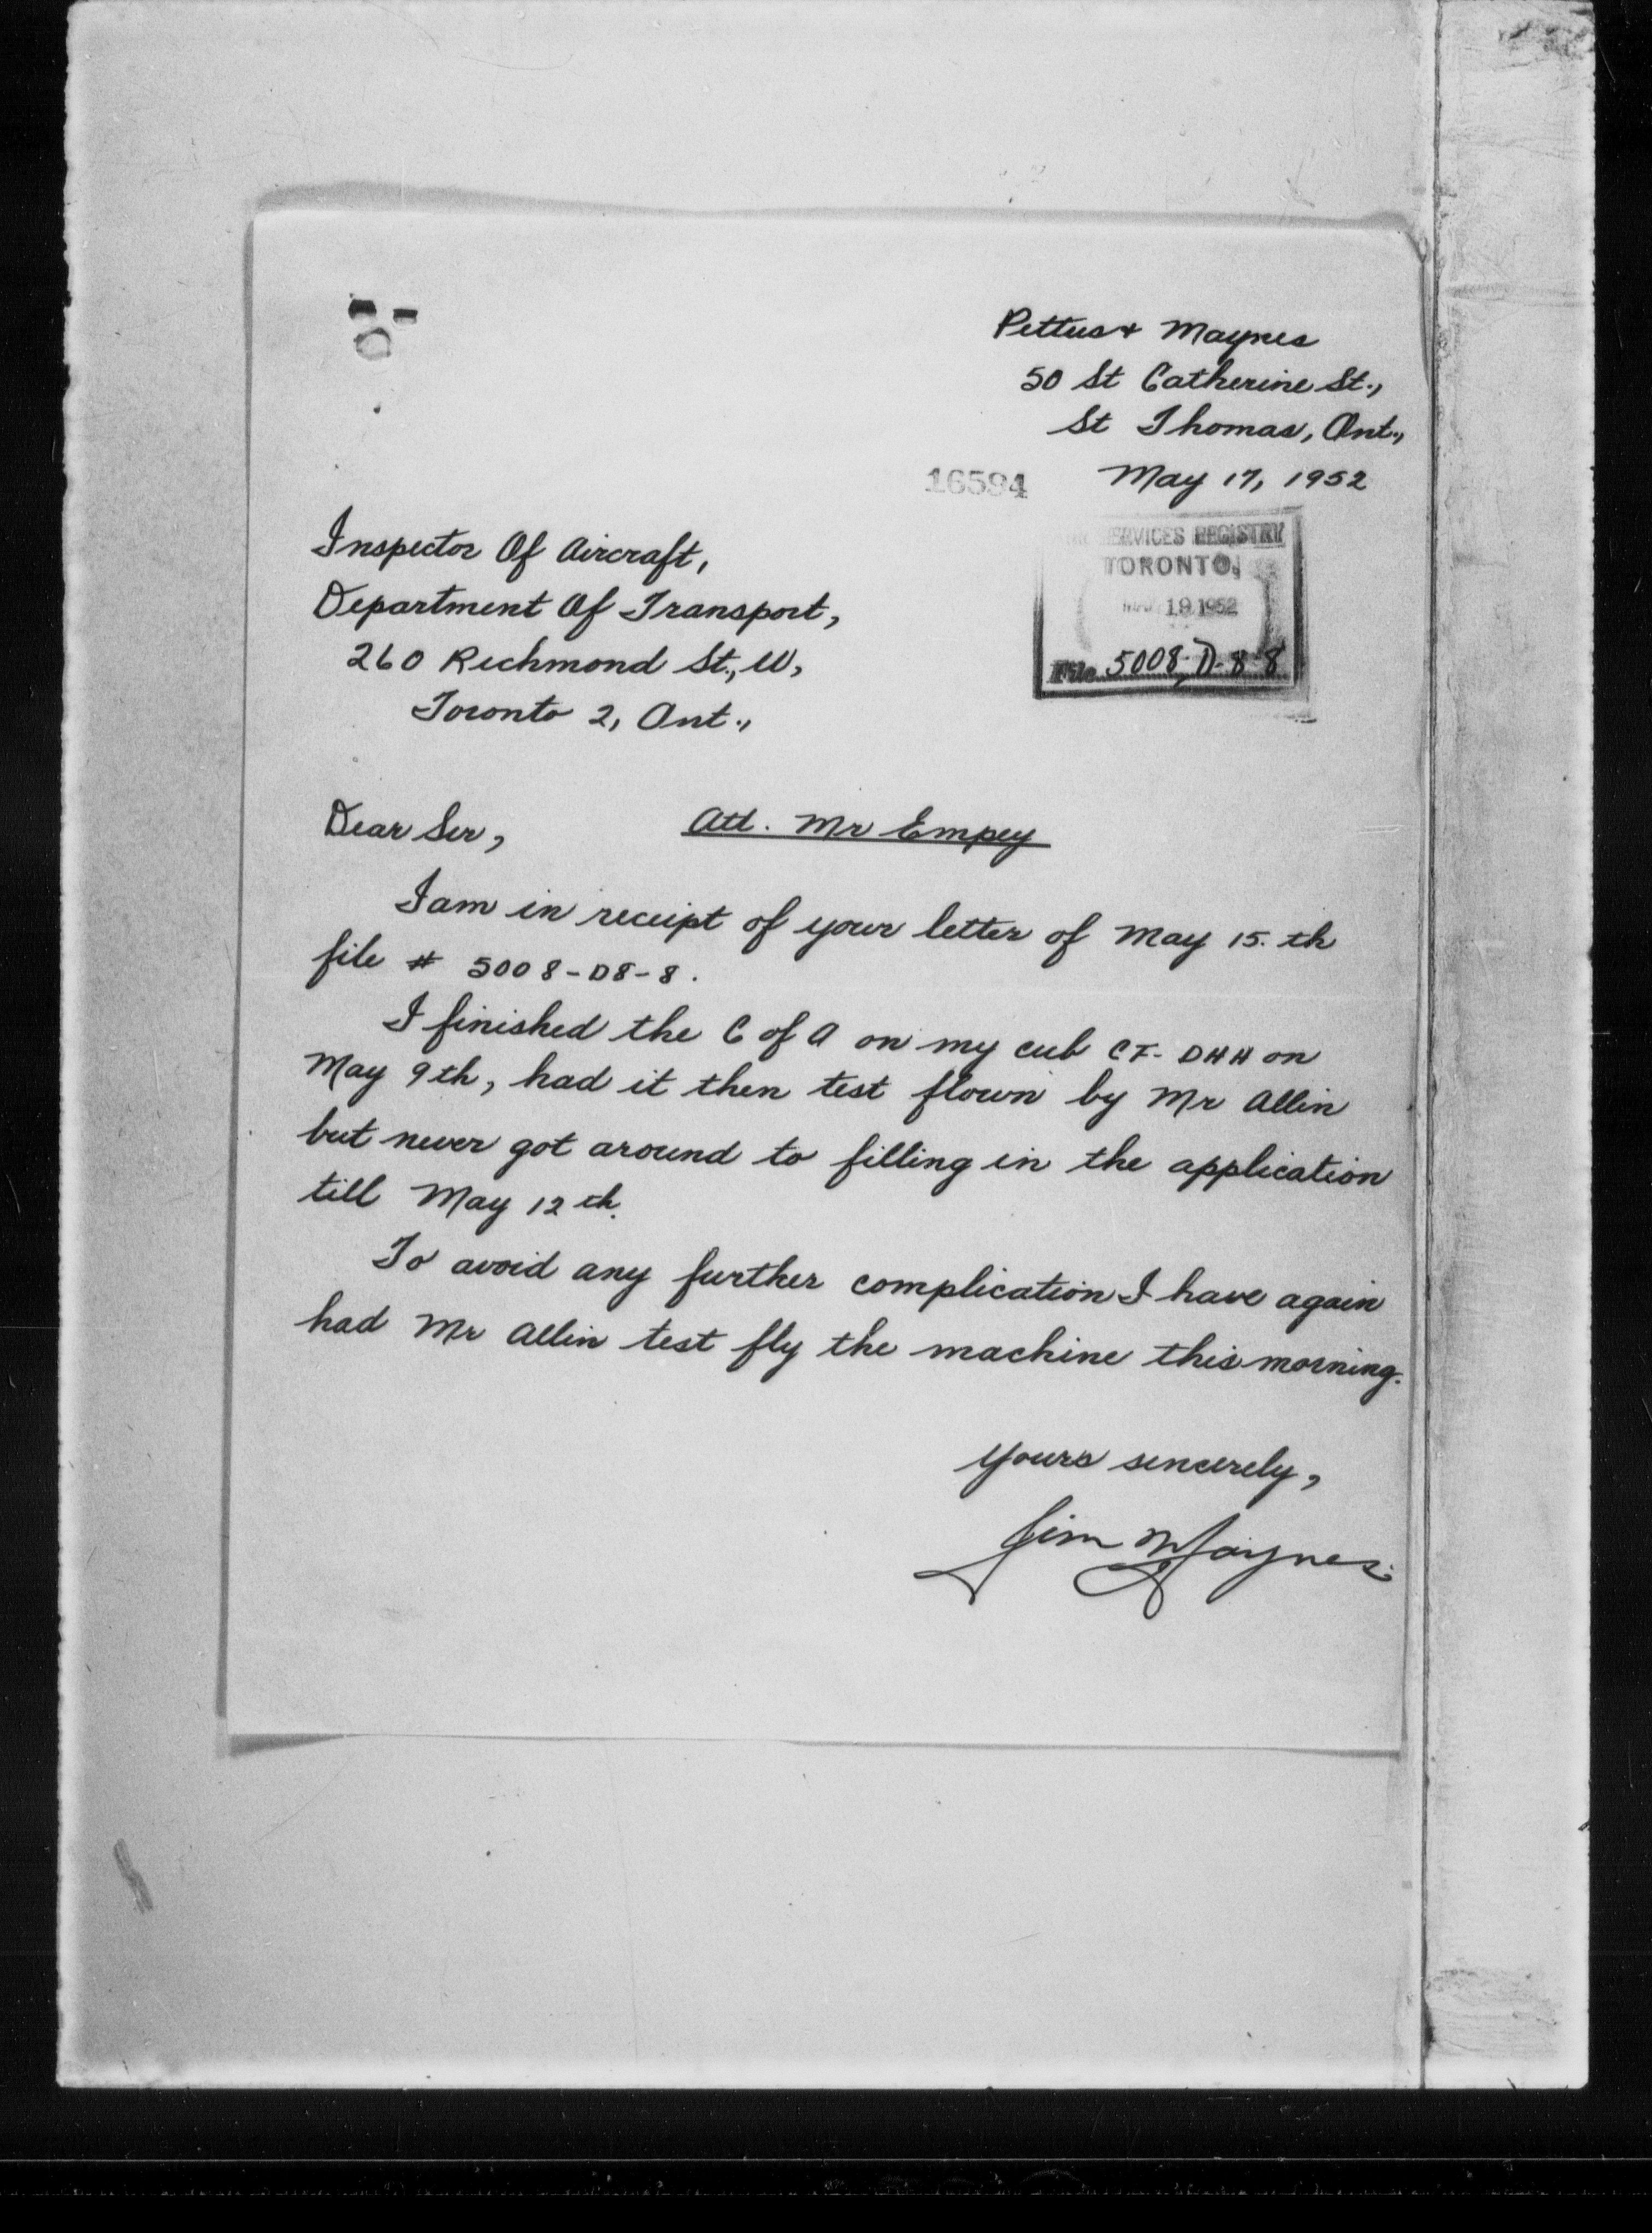 Pettus & Maynes
50 St Catherine St.,
St Thomas, Ont.,
16594
May 17, 1952
SERVICES REGISTRY
TORONTO,
19 1952
File 5008-D-8-8
Inspector Of Aircraft,
Department Of Transport,
260 Richmond St., W,
Toronto 2, Ont.,
Dear Sir,
Att. Mr Empey
I am in receipt of your letter of May 15.th
file # 5008-D8-8.
I finished the C of A on my cub CF-DHH on
May 9th, had it then test flown by Mr Allin
but never got around to filling in the application
till May 12th.
To avoid any further complication I have again
had Mr Allin test fly the machine this morning.
Yours sincerely,
Jim Maynes.